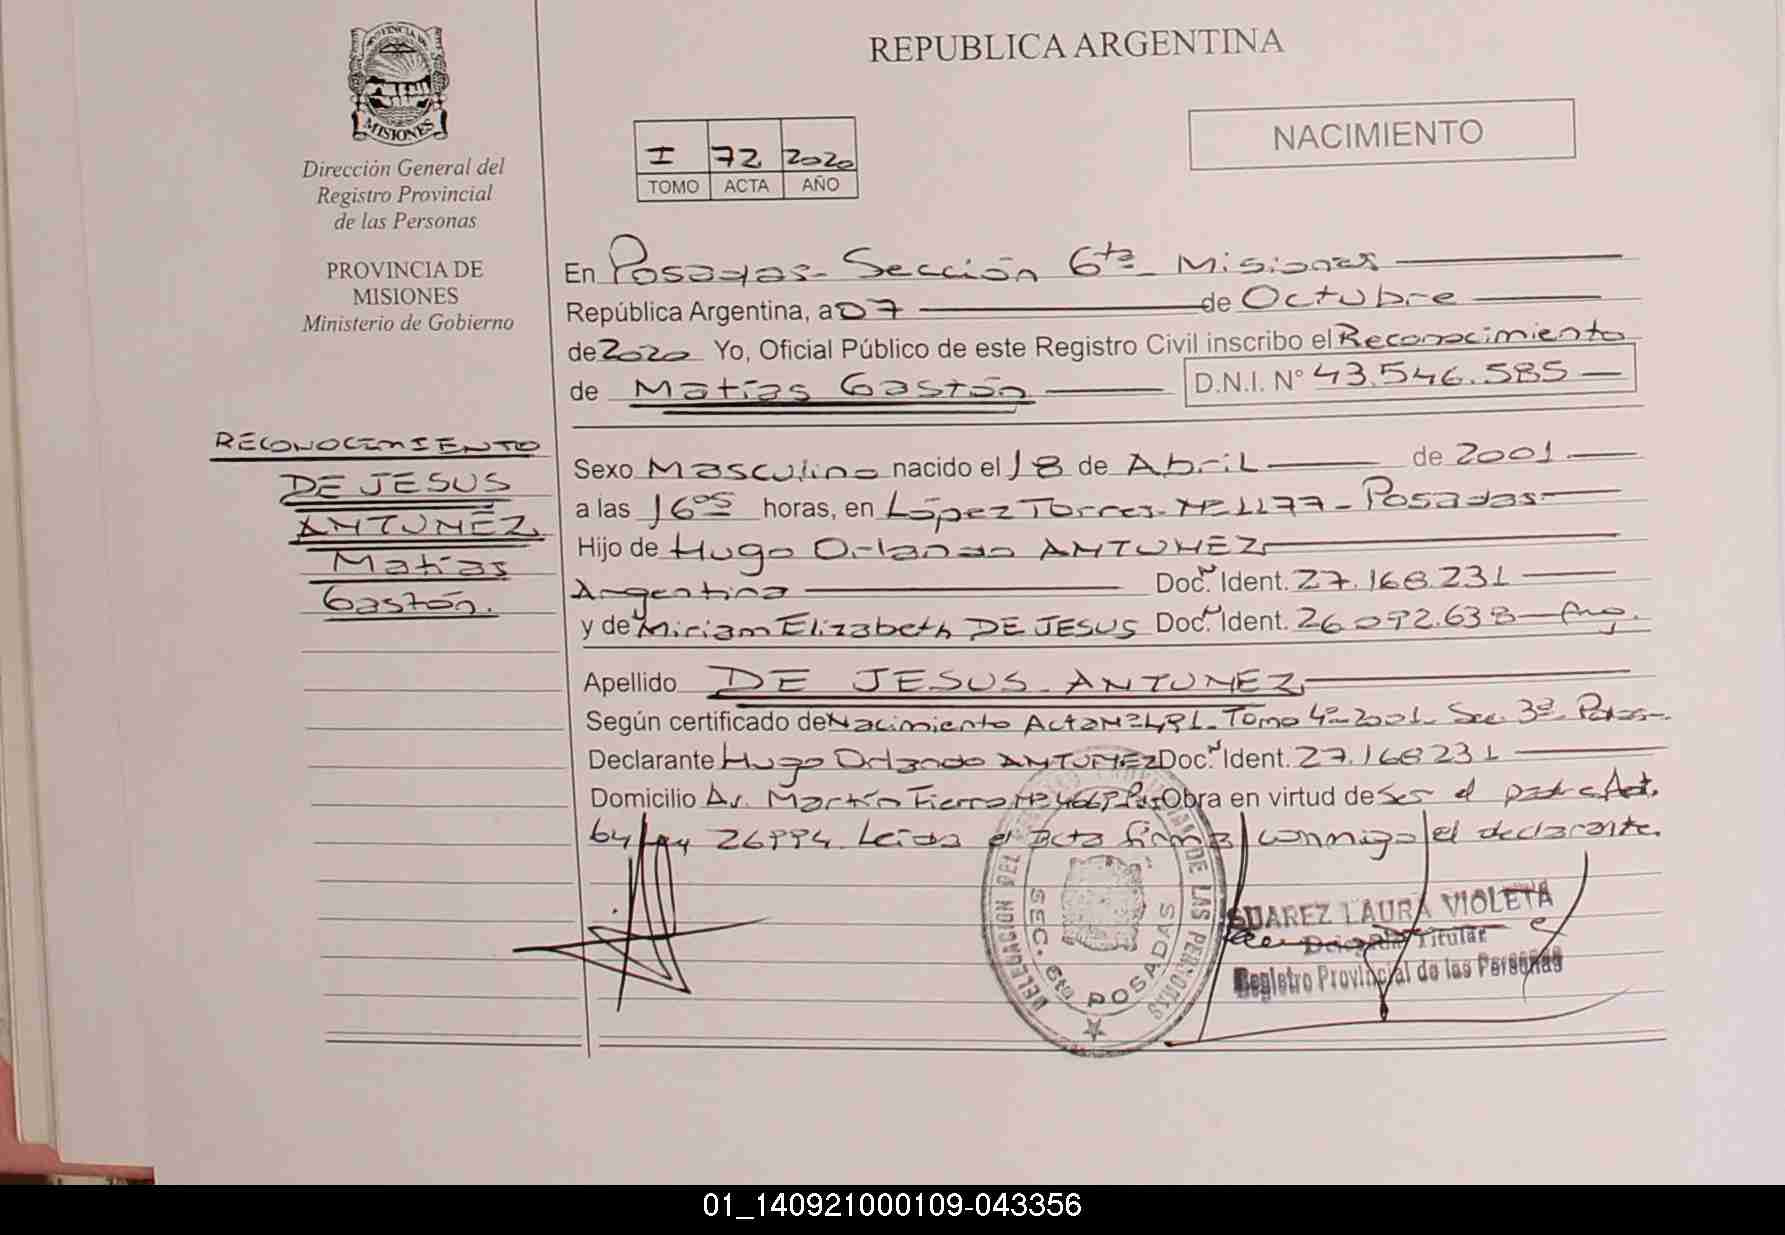 PROVINCIA DE
MISIONES
Dirección General del
Registro Provincial
de las Personas
PROVINCIA DE
MISIONES
Ministerio de Gobierno
RECONOCIMIENTO
DE JESUS
ANTUNEZ
Matías
Gastón.
REPUBLICA ARGENTINA
I 72 2020
TOMO ACTA AÑO
NACIMIENTO
En Posadas - Sección 6ta - Misiones
República Argentina, a 07 de Octubre
de 2020 Yo, Oficial Público de este Registro Civil inscribo el Reconocimiento
de Matías Gastón D.N.I. N° 43.546.585
Sexo Masculino nacido el 18 de Abril de 2001
a las 16 05 horas, en López Torres Nº 1177 - Posadas
Hijo de Hugo Orlando ANTUNEZ
Argentina Doc. Ident. 27.168.231
y de Miriam Elizabeth DE JESUS Doc. Ident. 26.092.638 - Arg.
Apellido DE JESUS ANTUNEZ
Según certificado de Nacimiento Acta Nº Tomo 4º - 2001 - Sec. 3ª
Declarante Hugo Orlando ANTUNEZ Doc. Ident. 27.168.231
Domicilio Av. Martín Fierro Nº Obra en virtud de ser el padre Art.
26994. Leída el acta firma conmigo el declarante.
DELEGACION DEL DE LAS PERSONAS
SEC. 6ta POSADAS
SUAREZ LAURA VIOLETA
Delegada Titular
Registro Provincial de las Personas
01_140921000109-043356